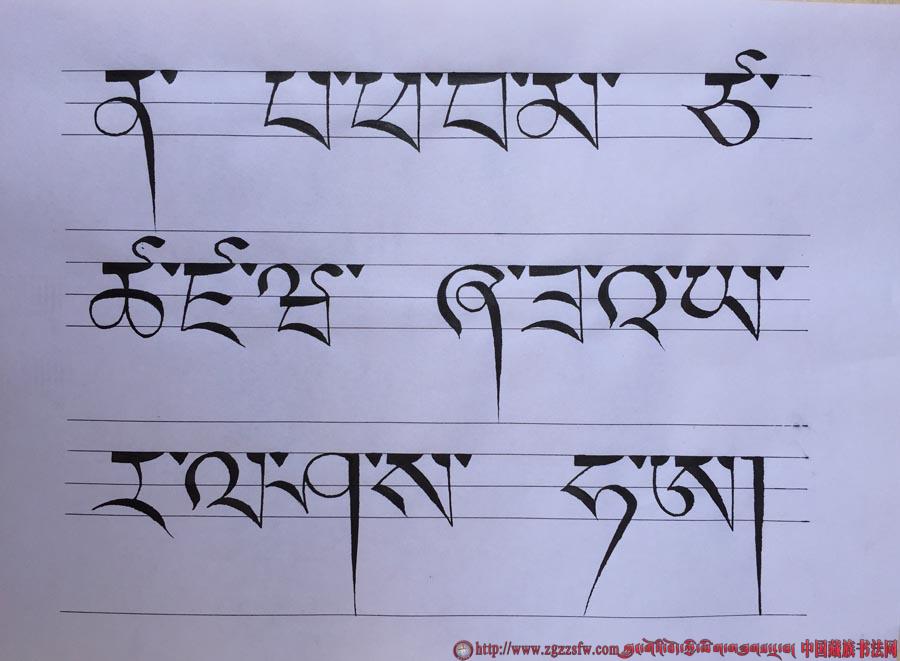 ན་ པ་ཕ་བ་མ་ ཙ་
ཚ་ཛ་ཝ་ ཞ་ཟ་འ་ཡ་
ར་ལ་ཤ་ས་ ཧ་ཨ།
http://www.zgzzsfw.com 中国藏族书法网